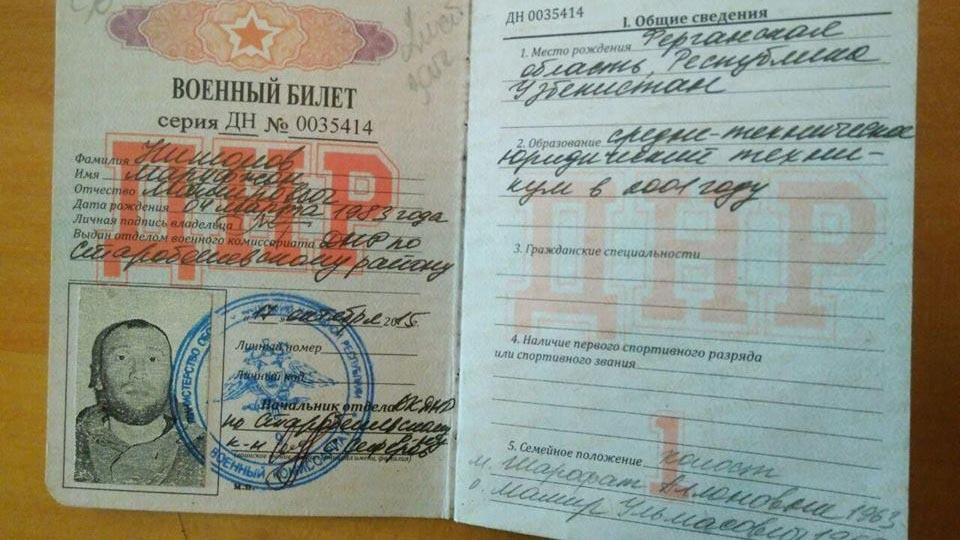 ВОЕННЫЙ БИЛЕТ
серия ДН № 0035414
ДНР
Фамилия
Имя Маруфжон
Отчество
Дата рождения 04 марта 1983 года
Личная подпись владельца
Выдан отделом военного комиссариата ДНР по
Старобешевскому району
"17" октября 2015
Личный номер
Личный код
Начальник отдела ВК ДНР
по Старобешевскому
ВОЕННЫЙ КОМИССАРИАТ
ДН 0035414
I. Общие сведения
1. Место рождения Ферганская
область, Республика
Узбекистан
2. Образование средне-техническое
юридический техни-
кум в 2001 году
ДНР
3. Гражданские специальности
4. Наличие первого спортивного разряда
или спортивного звания
1
5. Семейное положение холост
м. Шарофат 1963
о.